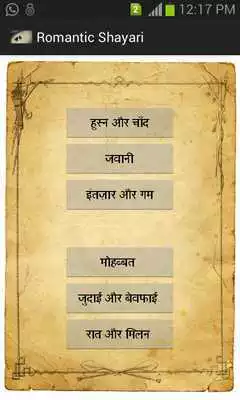 2
12:17 PM
Romantic Shayari
हुस्न और चाँद
जवानी
इंतज़ार और गम
मोहब्बत
जुदाई और बेवफाई
रात और मिलन